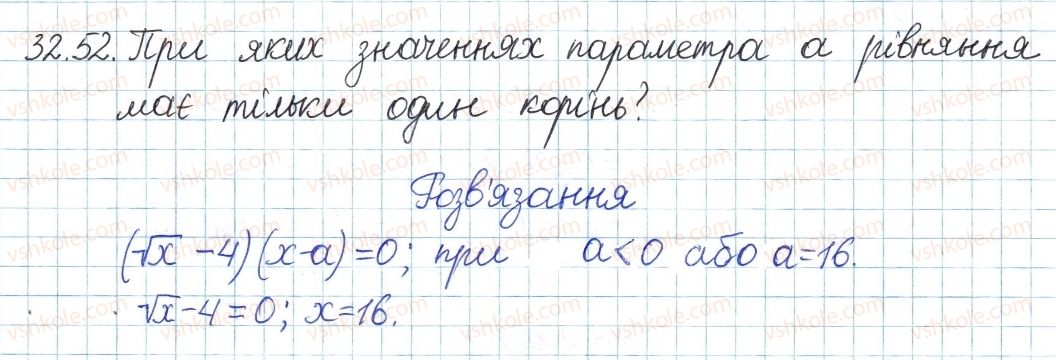 32.52. При яких значеннях параметра a рівняння
має тільки один корінь?
Розв'язання
(√x - 4)(x-a)=0; при a<0 або a=16.
√x-4=0; x=16.